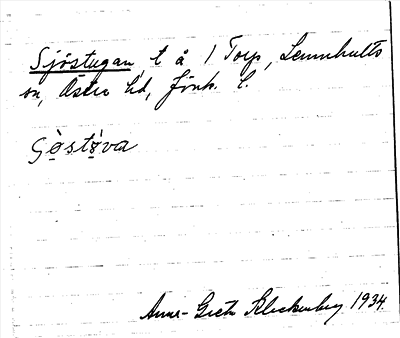 Sjöstugan t å 1 Torp, Lemnhults
sn, Östra hd, Jönk. l.
Sȯ̀stȯ́va
Anna-Greta Bleckenberg 1934.